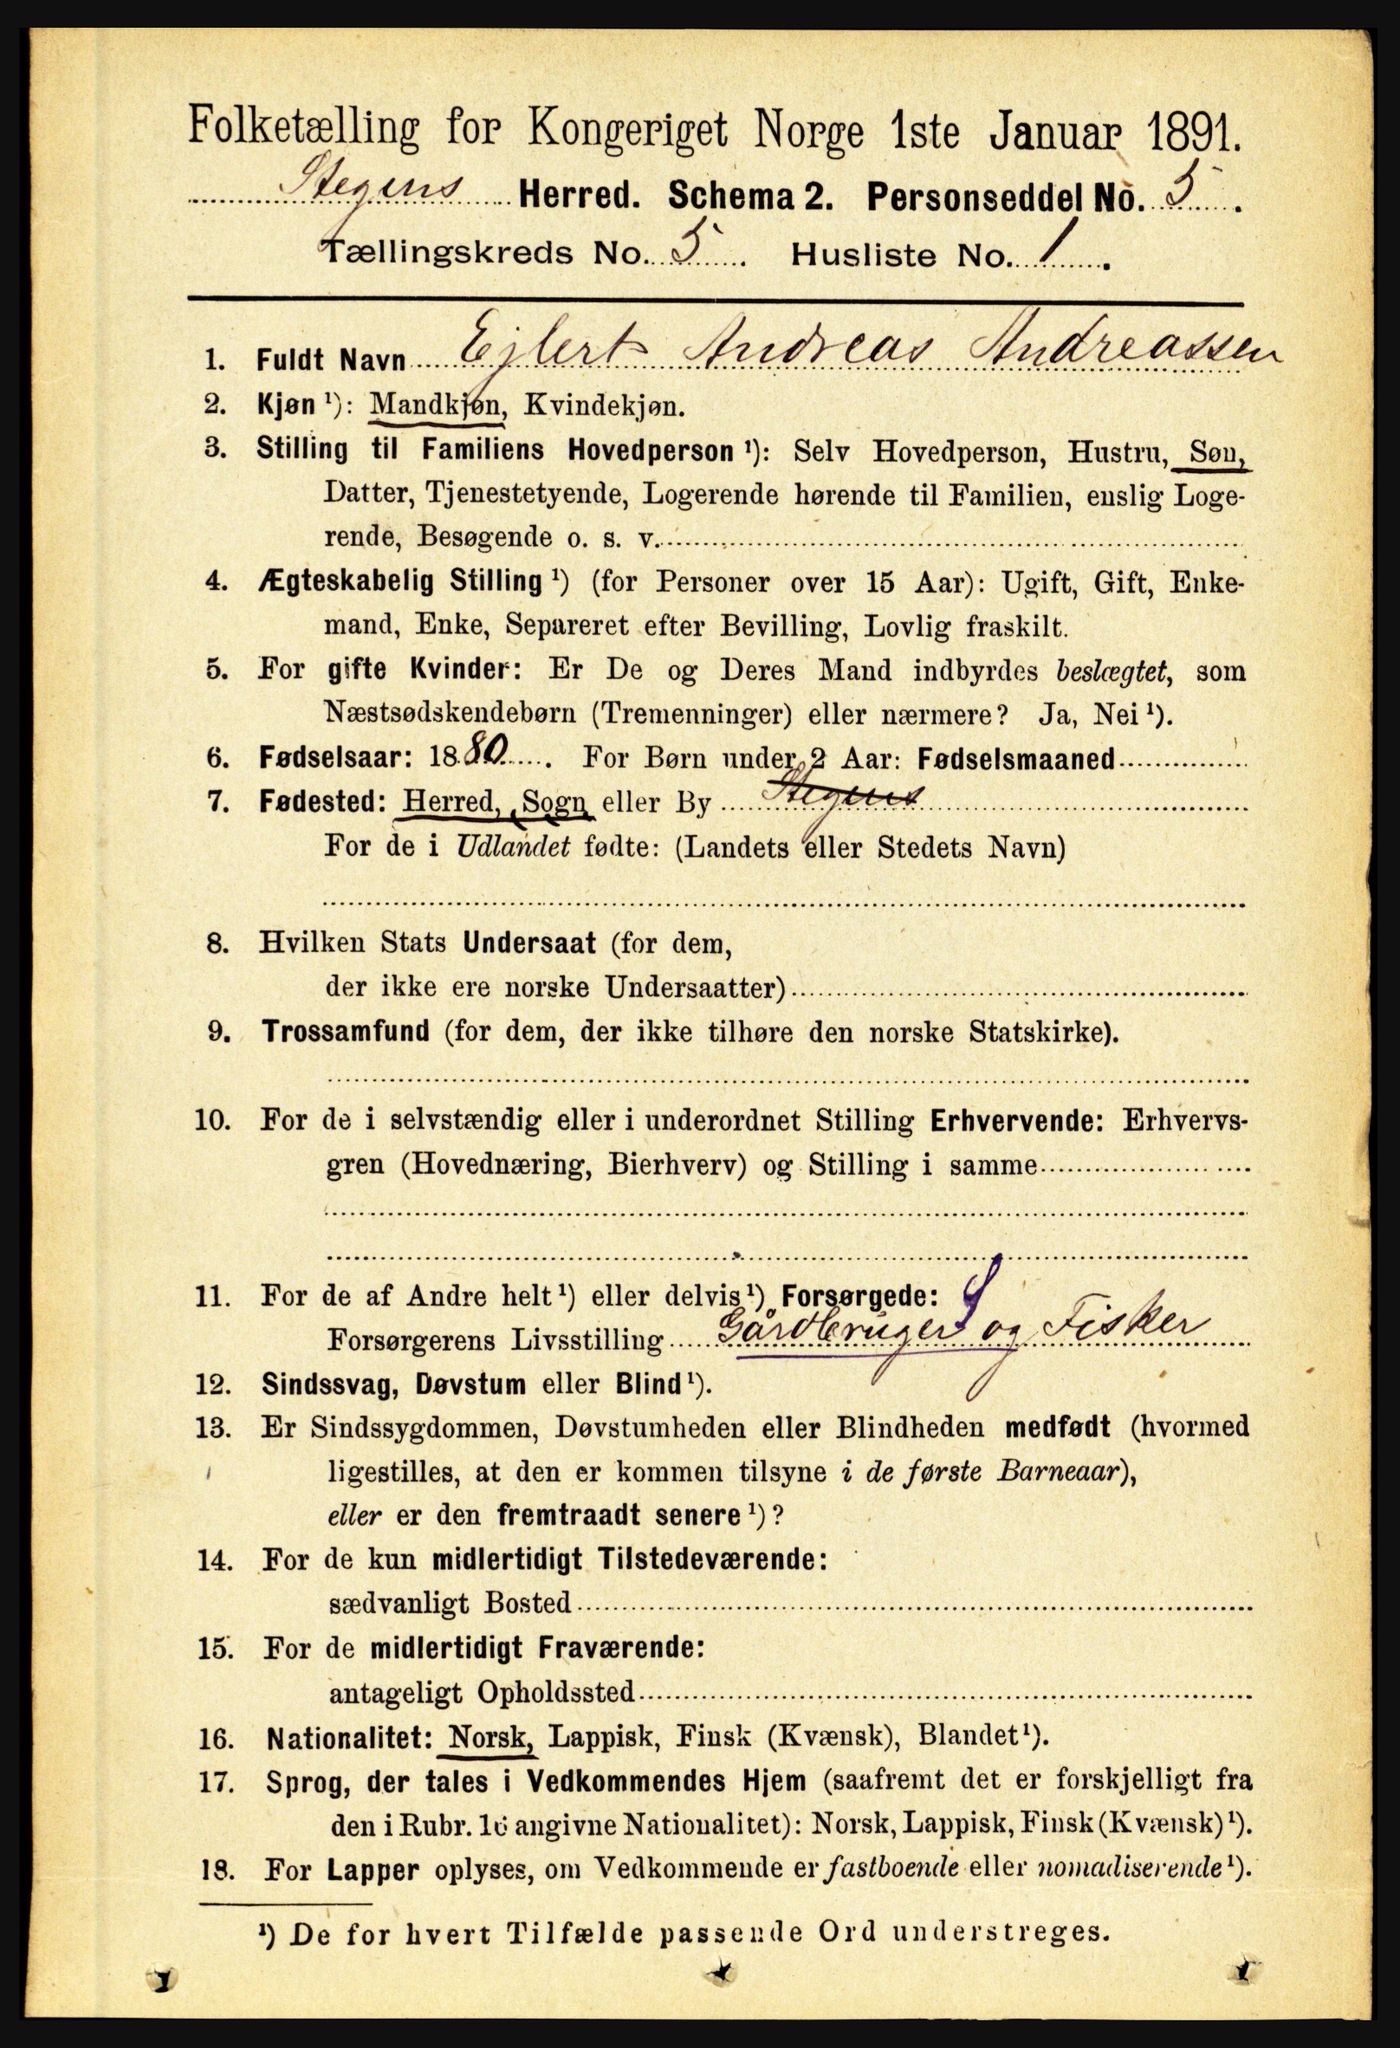 Folketælling for Kongeriget Norge 1ste Januar 1891.
Stegens Herred. Schema 2. Personseddel No. 5.
Tællingskreds No. 5. Husliste No. 1.
1. Fuldt Navn Ejlert Andreas Andreassen
2. Kjøn ¹): Mandkjøn, Kvindekjøn.
3. Stilling til Familiens Hovedperson ¹): Selv Hovedperson, Hustru, Søn,
Datter, Tjenestetyende, Logerende hørende til Familien, enslig Loge-
rende, Besøgende o. s. v.
4. Ægteskabelig Stilling ¹) (for Personer over 15 Aar): Ugift, Gift, Enke-
mand, Enke, Separeret efter Bevilling, Lovlig fraskilt.
5. For gifte Kvinder: Er De og Deres Mand indbyrdes beslægtet, som
Næstsødskendebørn (Tremenninger) eller nærmere? Ja, Nei ¹).
6. Fødselsaar: 1880. For Børn under 2 Aar: Fødselsmaaned
7. Fødested: Herred, Sogn eller By Stegens
For de i Udlandet fødte: (Landets eller Stedets Navn)
8. Hvilken Stats Undersaat (for dem,
der ikke ere norske Undersaatter)
9. Trossamfund (for dem, der ikke tilhøre den norske Statskirke).
10. For de i selvstændig eller i underordnet Stilling Erhvervende: Erhvervs-
gren (Hovednæring, Bierhverv) og Stilling i samme
11. For de af Andre helt ¹) eller delvis ¹) Forsørgede:
Forsørgerens Livsstilling Gårdbruger og Fisker
12. Sindssvag, Døvstum eller Blind ¹).
13. Er Sindssygdommen, Døvstumheden eller Blindheden medfødt (hvormed
ligestilles, at den er kommen tilsyne i de første Barneaar),
eller er den fremtraadt senere ¹)?
14. For de kun midlertidigt Tilstedeværende:
sædvanligt Bosted
15. For de midlertidigt Fraværende:
antageligt Opholdssted
16. Nationalitet: Norsk, Lappisk, Finsk (Kvænsk), Blandet ¹).
17. Sprog, der tales i Vedkommendes Hjem (saafremt det er forskjelligt fra
den i Rubr. 16 angivne Nationalitet): Norsk, Lappisk, Finsk (Kvænsk) ¹).
18. For Lapper oplyses, om Vedkommende er fastboende eller nomadiserende ¹).
¹) De for hvert Tilfælde passende Ord understreges.